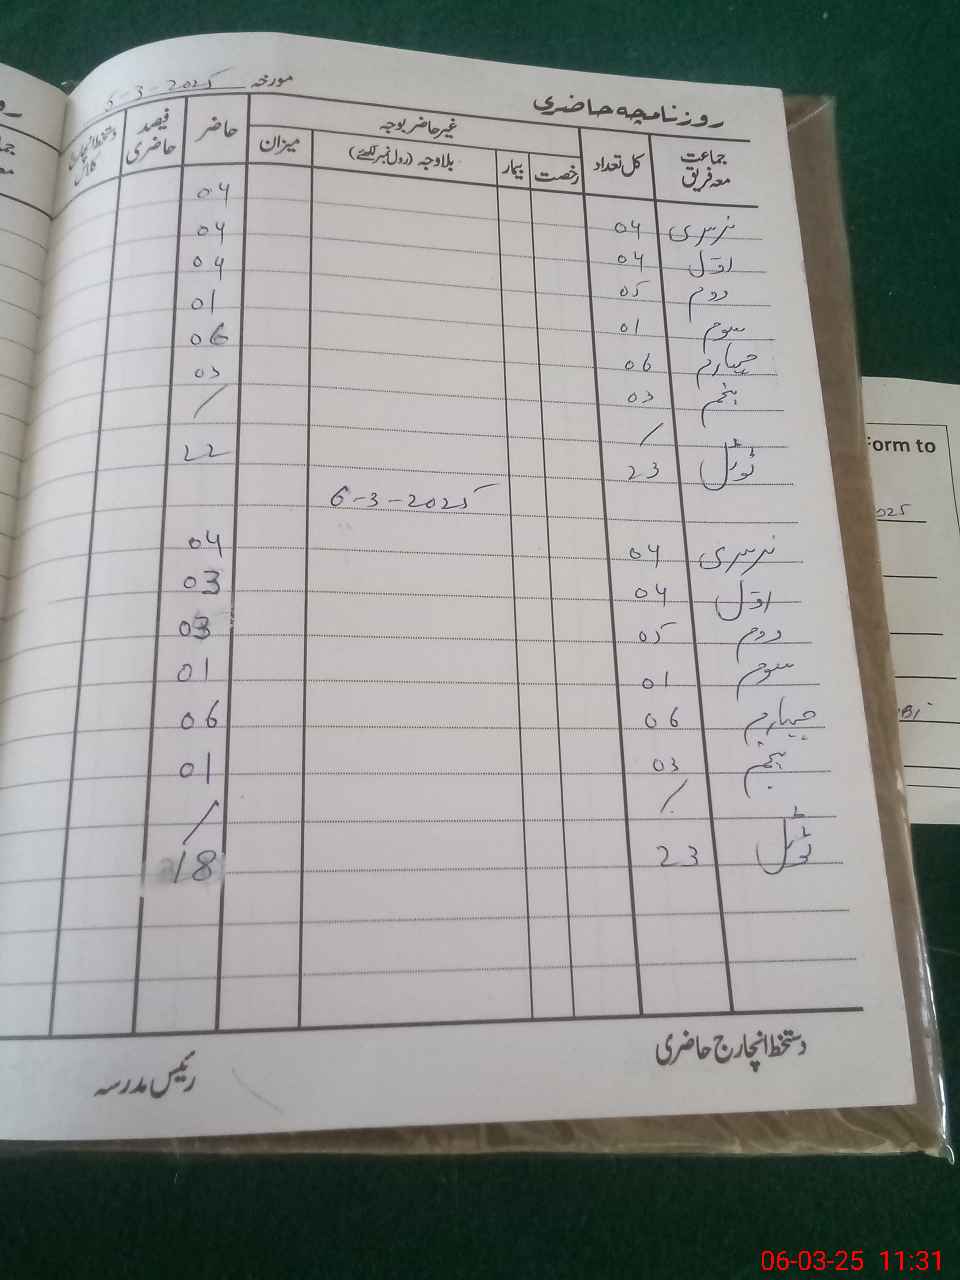 روزنامچہ حاضری
مورخہ 5-3-2025
جماعت معہ فریق کل تعداد غیر حاضر بوجہ حاضر فیصد حاضری دستخط انچارج کلاس
رخصت بیمار بلاوجہ (رول نمبر لکھئے) میزان
نرسری 04 04
اول 04 04
دوم 05 04
سوم 01 01
چہارم 06 06
پنجم 03 03
/ /
ٹوٹل 23 22
6-3-2025
نرسری 04 04
اول 04 03
دوم 05 03
سوم 01 01
چہارم 06 06
پنجم 03 01
/ /
ٹوٹل 23 18
دستخط انچارج حاضری
رئیس مدرسہ
Form to
025
06-03-25 11:31